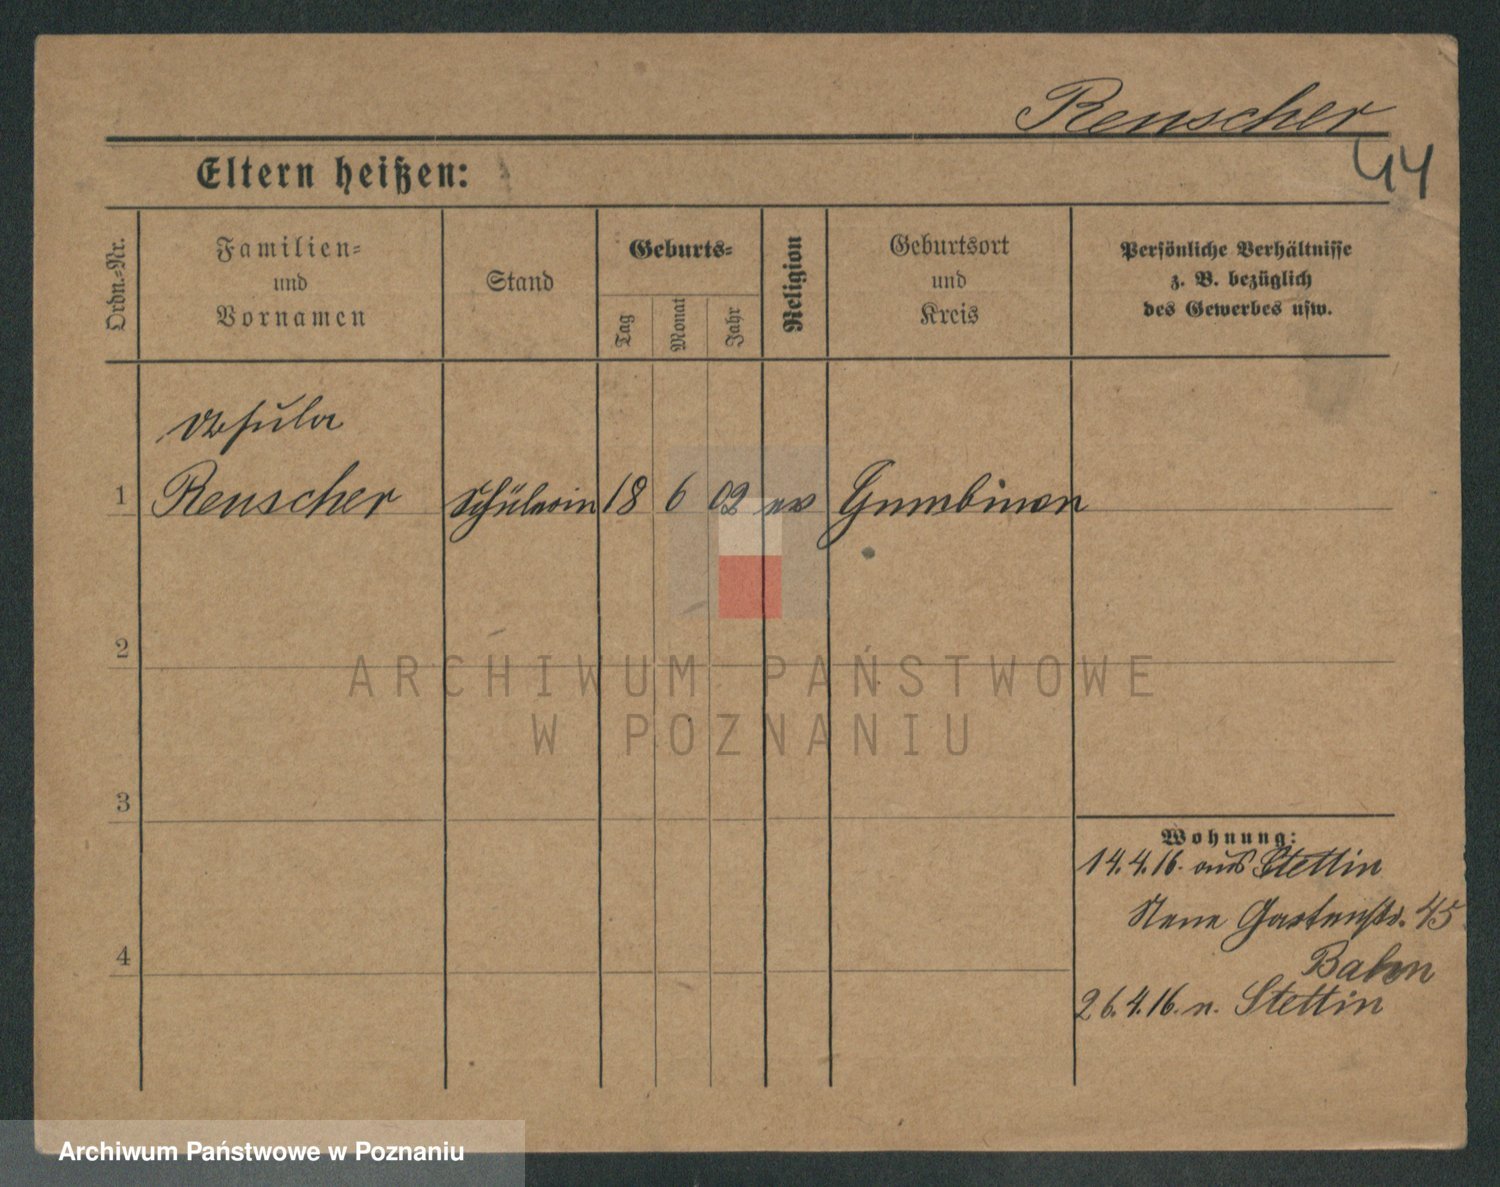 Renscher
44
Eltern heißen:
Ordn.-Nr.
Familien-
und
Vornamen
Stand
Geburts-
Tag
Monat
Jahr
Religion
Geburtsort
und
Kreis
Persönliche Verhältnisse
z. B. bezüglich
des Gewerbes usw.
Ursula
1 Renscher Schülerin 18 6 02 ev Gumbinen
2
ARCHIWUM PAŃSTWOWE
W POZNANIU
3
Wohnung:
14.4.16. aus Stettin
Neue Gartenstr. 45
4
Bahn
26.4.16. n. Stettin
Archiwum Państwowe w Poznaniu